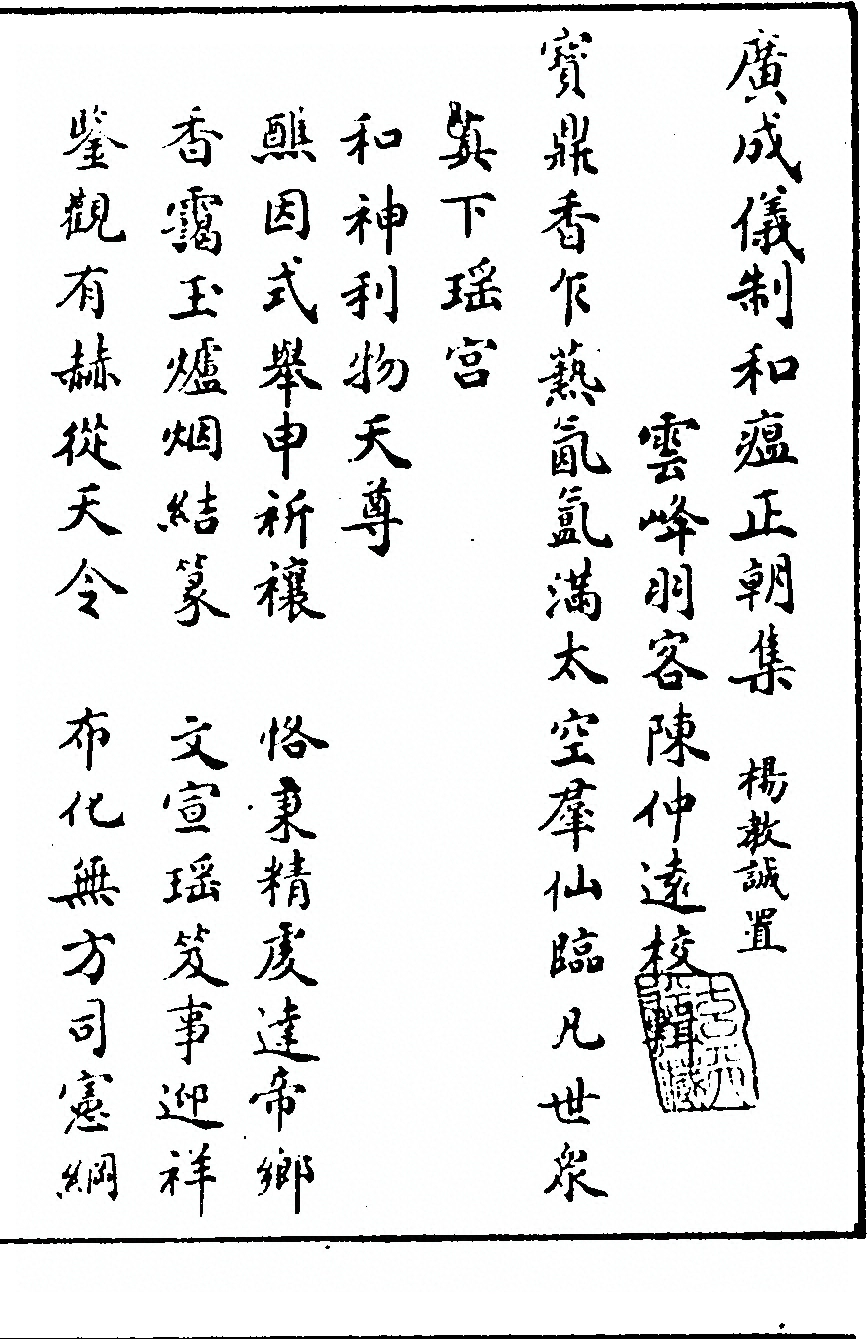 廣成儀制和瘟正朝集 楊教誠置
雲峰羽客陳仲遠校輯
寶鼎香乍爇氤氳滿太空羣仙臨凡世眾
真下瑶宫
和神利物天尊
醮因式舉申祈禳 恪秉精虔達帝鄉
香靄玉爐烟結篆 文宣瑶笈事迎祥
鉴觀有赫從天令 布化無方司憲綱